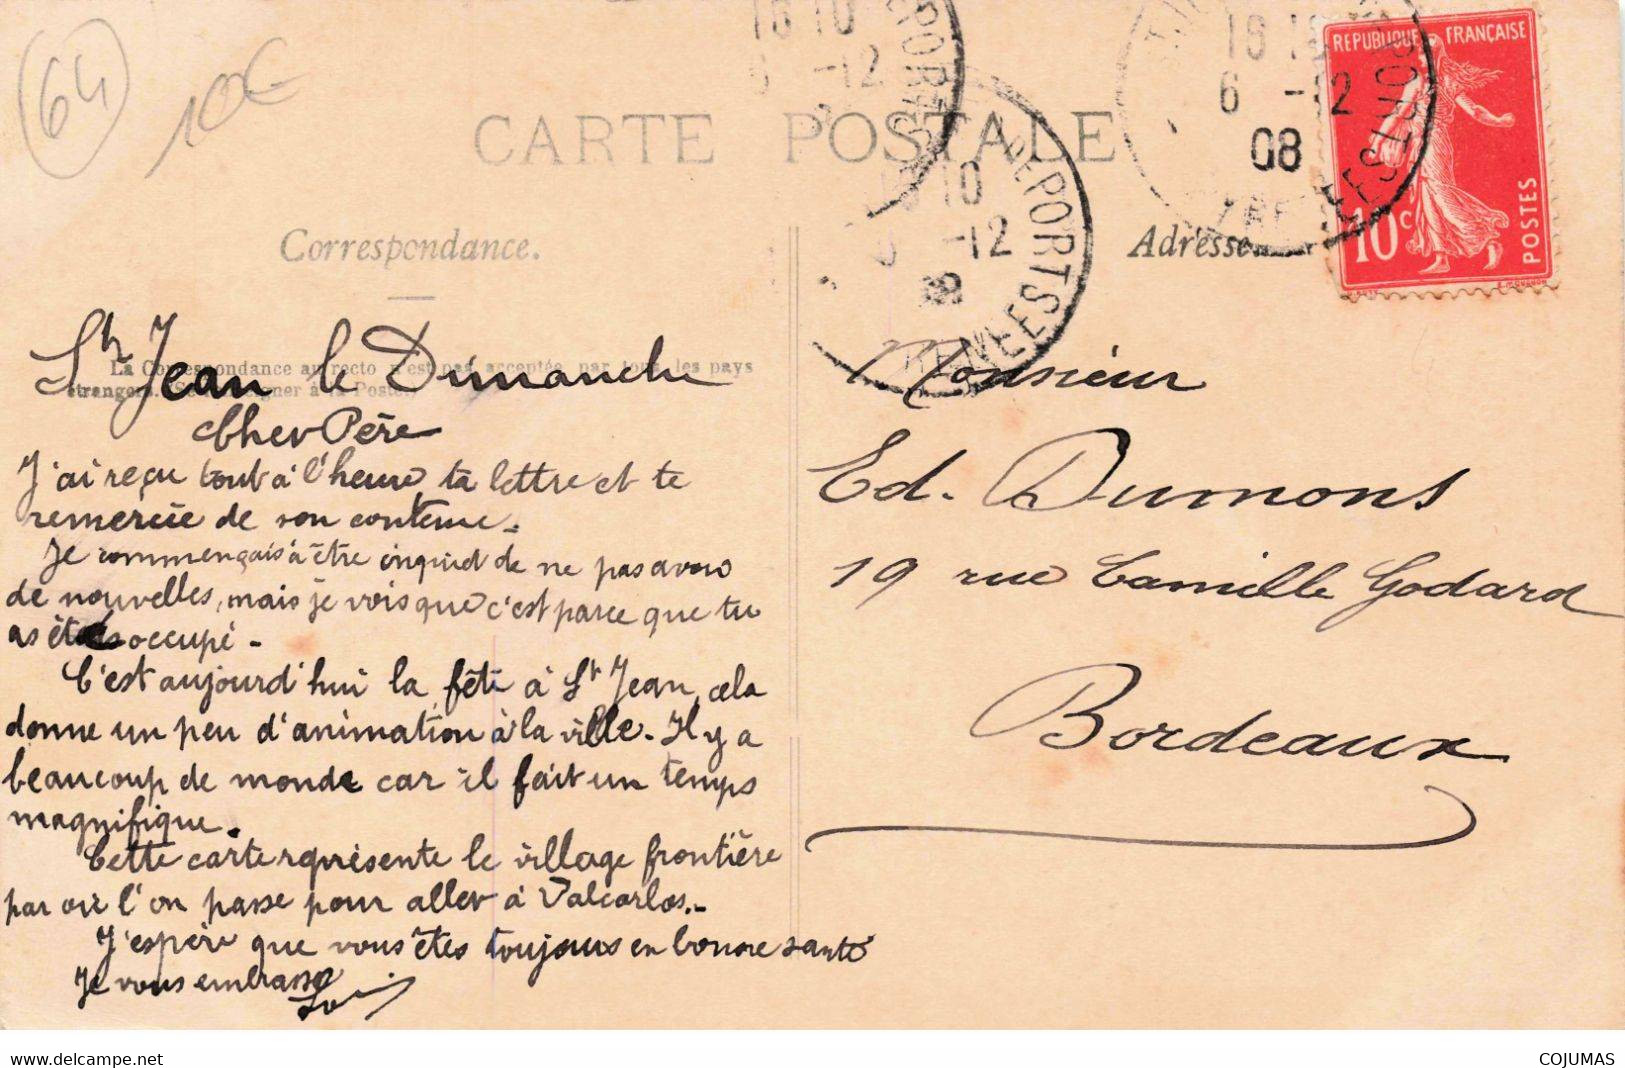 64
10€
CARTE POSTALE
Correspondance.
Adresse
REPUBLIQUE FRANÇAISE
10c
POSTES
16 10
6 -12
08
La Correspondance au recto n'est pas acceptée par tous les pays
étrangers. (Se renseigner à la Poste.)
St Jean le Dimanche
Cher Père
J'ai reçu tout à l'heure ta lettre et te
remercie de son contenu.
Je commençais à être inquiet de ne pas avoir
de nouvelles, mais je vois que c'est parce que tu
as été occupé -
C'est aujourd'hui la fête à St Jean, cela
donne un peu d'animation à la ville. Il y a
beaucoup de monde car il fait un temps
magnifique.
Cette carte représente le village frontière
par où l'on passe pour aller à Valcarlos.-
J'espère que vous êtes toujours en bonne santé
Je vous embrasse
Monsieur
Ed. Dumons
19 rue Camille Godard
Bordeaux
www.delcampe.net
COJUMAS